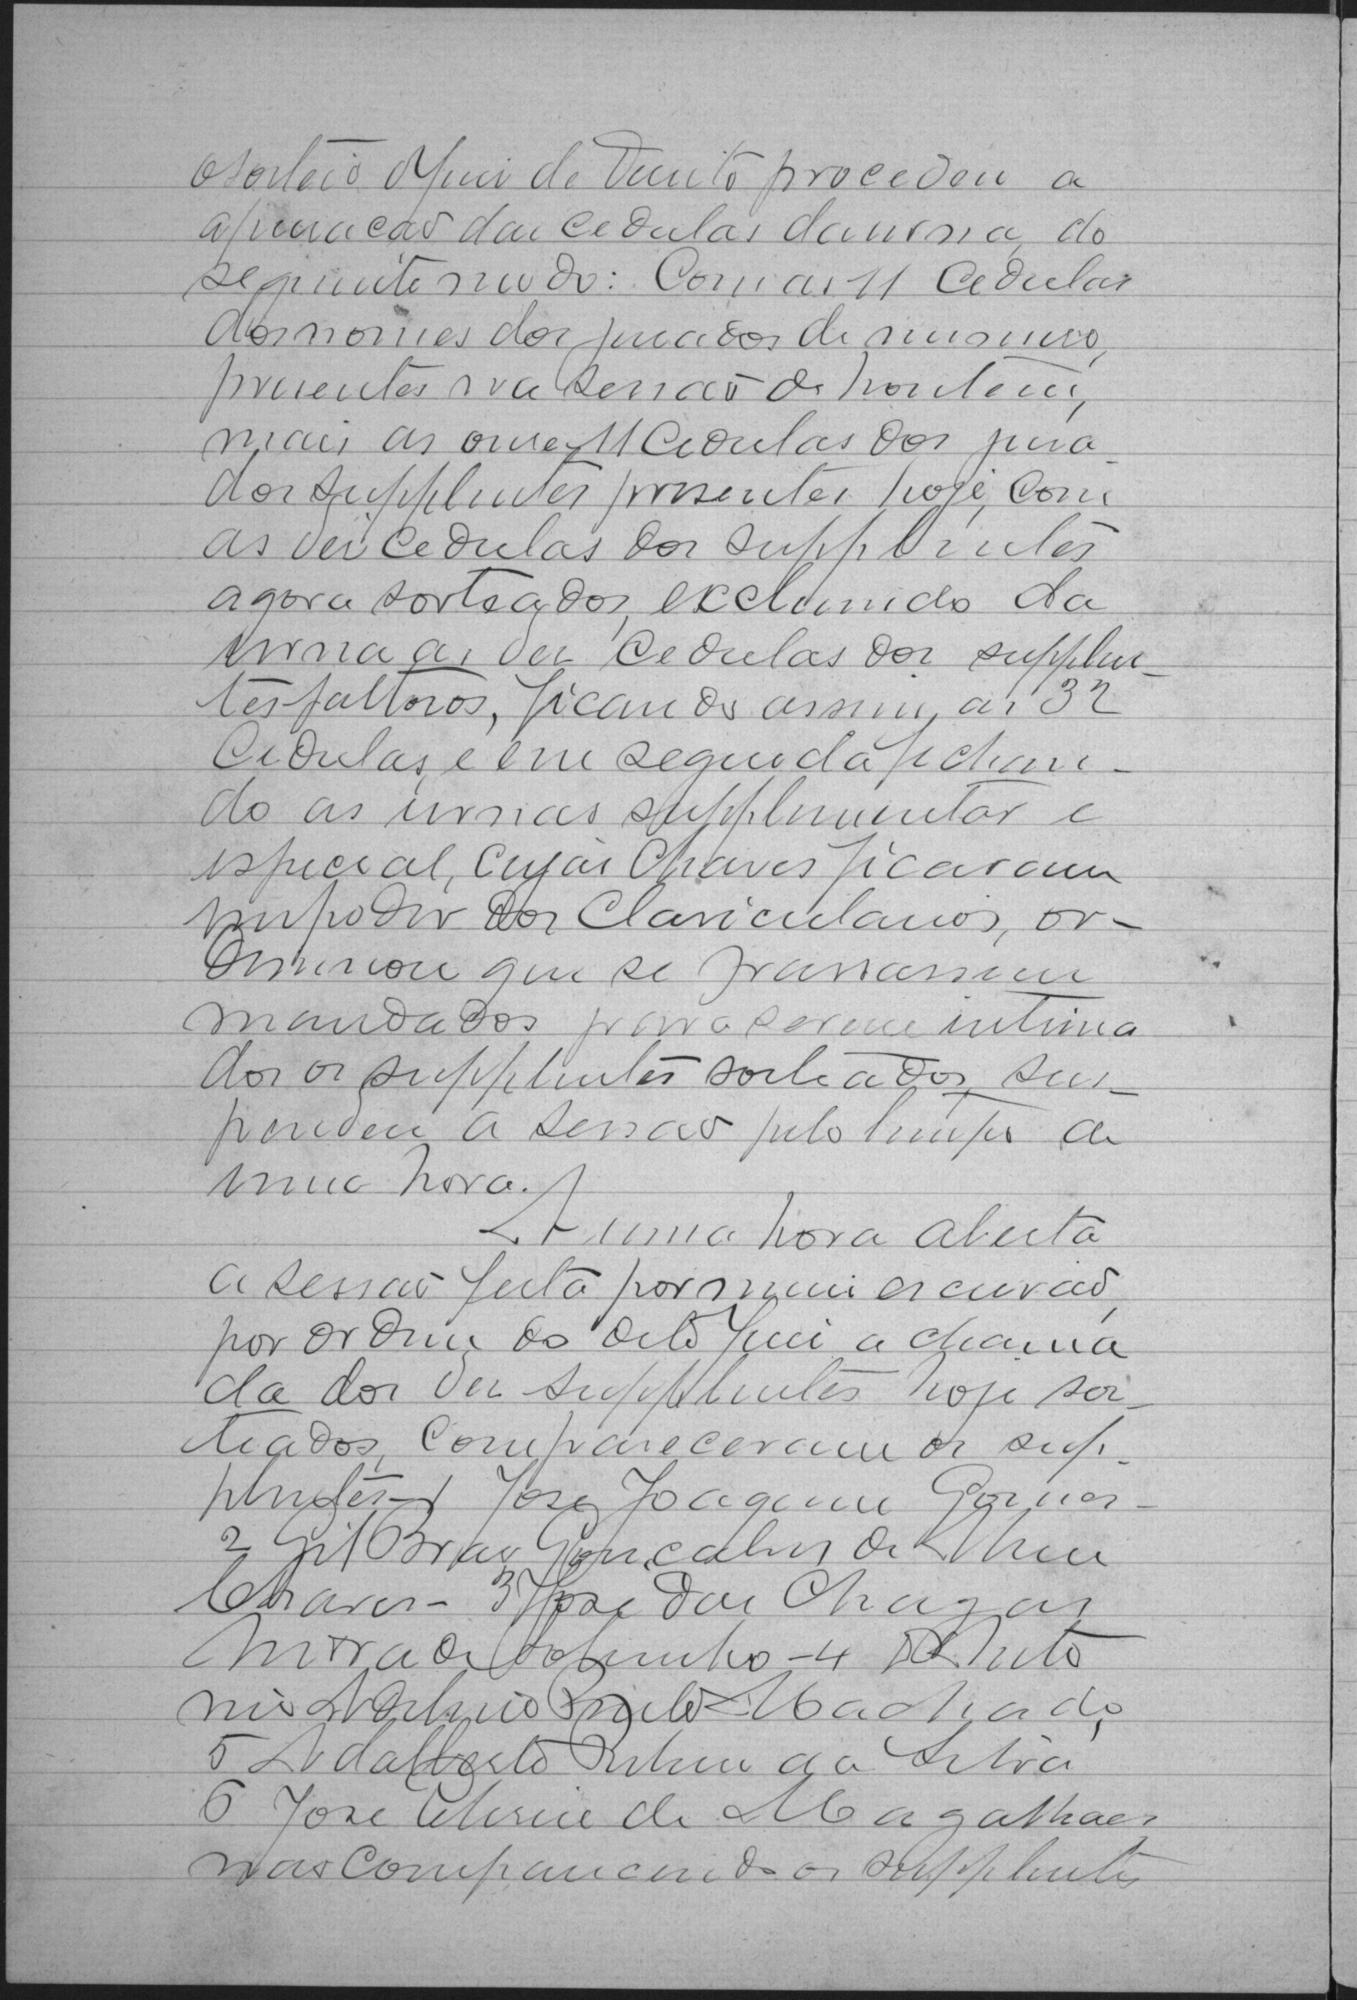 o sorteio o Juiz de Direito procedeu a
apuracão das cedulas da urna do
seguinte modo: Com as 11 Cedulas
dos nomes dos jurados de numero,
presentes na sessão de hontem,
mais as onze 11 Cedulas dos jura_
dos supplentes presentes hoje, com
as dez cedulas dos supplentes
agora sorteados, excluindo da
urna as dez cedulas dos supplen_
tes faltosos, ficando assim as 32
Cedulas, e em seguida fechan_
do as urnas supplementar e
especial, cujas Chaves ficaram
em poder dos Clavicularios, or_
denou que se passassem
mandados para serem intima
dos os supplentes sorteados, sus_
pendeu a sessão pelo tempo de
uma hora.
A uma hora aberta
a sessão feita por mim escrivão,
por ordem do dito Juiz a chama
da dos dez supplentes hoje sor_
teados, Compareceram os sup_
plentes 1 José Joaquim Gomes_
2 Gil Braz Gonçalves de
Chaves_ 3 José das Chagas
Sobrinho_4 Anto
nio Machado,
5 Adalberto da Silva
6 José de Magalhães
nas comparecendo os supplentes